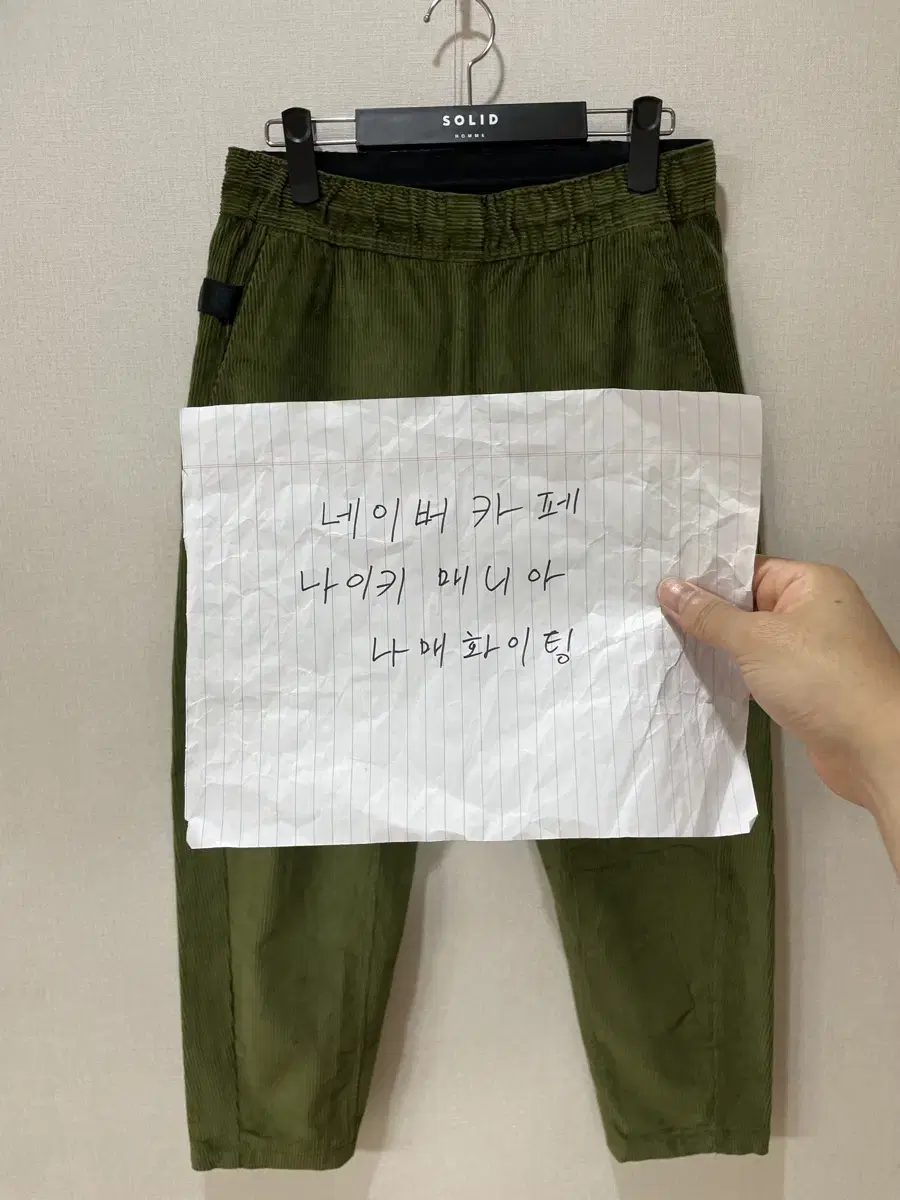 SOLID
HOMME
네이버 카페
나이키 매니아
나매화이팅